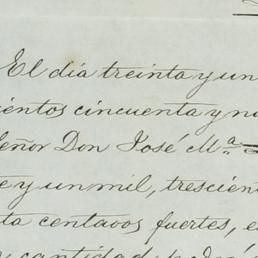 El día treinta y un
ientos cincuenta y n
eñor Don José Mª
e y un mil, trescient
ta centavos fuertes, e
y cantidad